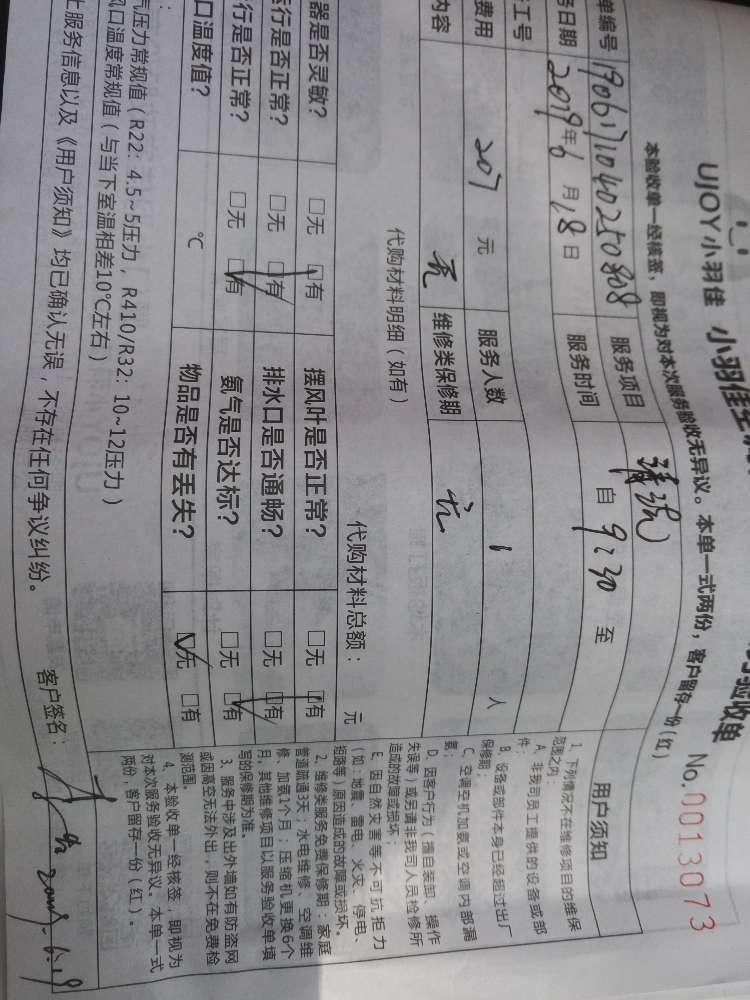 UJOY小羽佳 小羽佳
验收单
No.0013073
本验收单一经核签，即视为对本次服务验收无异议。本单一式两份，客户留存一份(红)
单编号 1906171040250808 服务项目 清洗
务日期 2019年6月18日 服务时间 自 9:30 至
工号
费用 207 元 服务人数 1 人
内容 无 维修类保修期 无
代购材料明细（如有） 代购材料总额： 元
器是否灵敏？ □无 □有 摆风叶是否正常？ □无 □有
行是否正常？ □无 □有 排水口是否通畅？ □无 □有
行是否正常？ □无 □有 氨气是否达标？ □无 □有
口温度值？ ℃ 物品是否有丢失？ □无 □有
气压力常规值（R22：4.5~5压力，R410/R32：10~12压力）
风口温度常规值（与当下室温相差10℃左右）
上服务信息以及《用户须知》均已确认无误，不存在任何争议纠纷。
客户签名：
用户须知
1、下列情况不在维修项目的维保
范围之内：
A、非我司员工提供的设备或部
件；
B、设备或部件本身已经超过出厂
保修期；
C、空调空机加氨或空调内部漏
氨；
D、因客户行为（擅自装卸、操作
失误等）或另请非我司人员检修所
造成的故障或损坏；
E、因自然灾害等不可抗拒力
（如：地震、雷电、火灾、停电、
短路等）原因造成的故障或损坏。
2、维修类服务免费保修期：家庭
管道疏通3天；水电维修、空调维
修、加氨1个月；压缩机更换6个
月，其他维修项目以服务验收单填
写的保修期为准。
3、服务中涉及出外墙如有防盗网
或因高空无法外出，则不在免费检
测范围。
4、本验收单一经核签，即视为
对本次服务验收无异议。本单一式
两份，客户留存一份（红）。